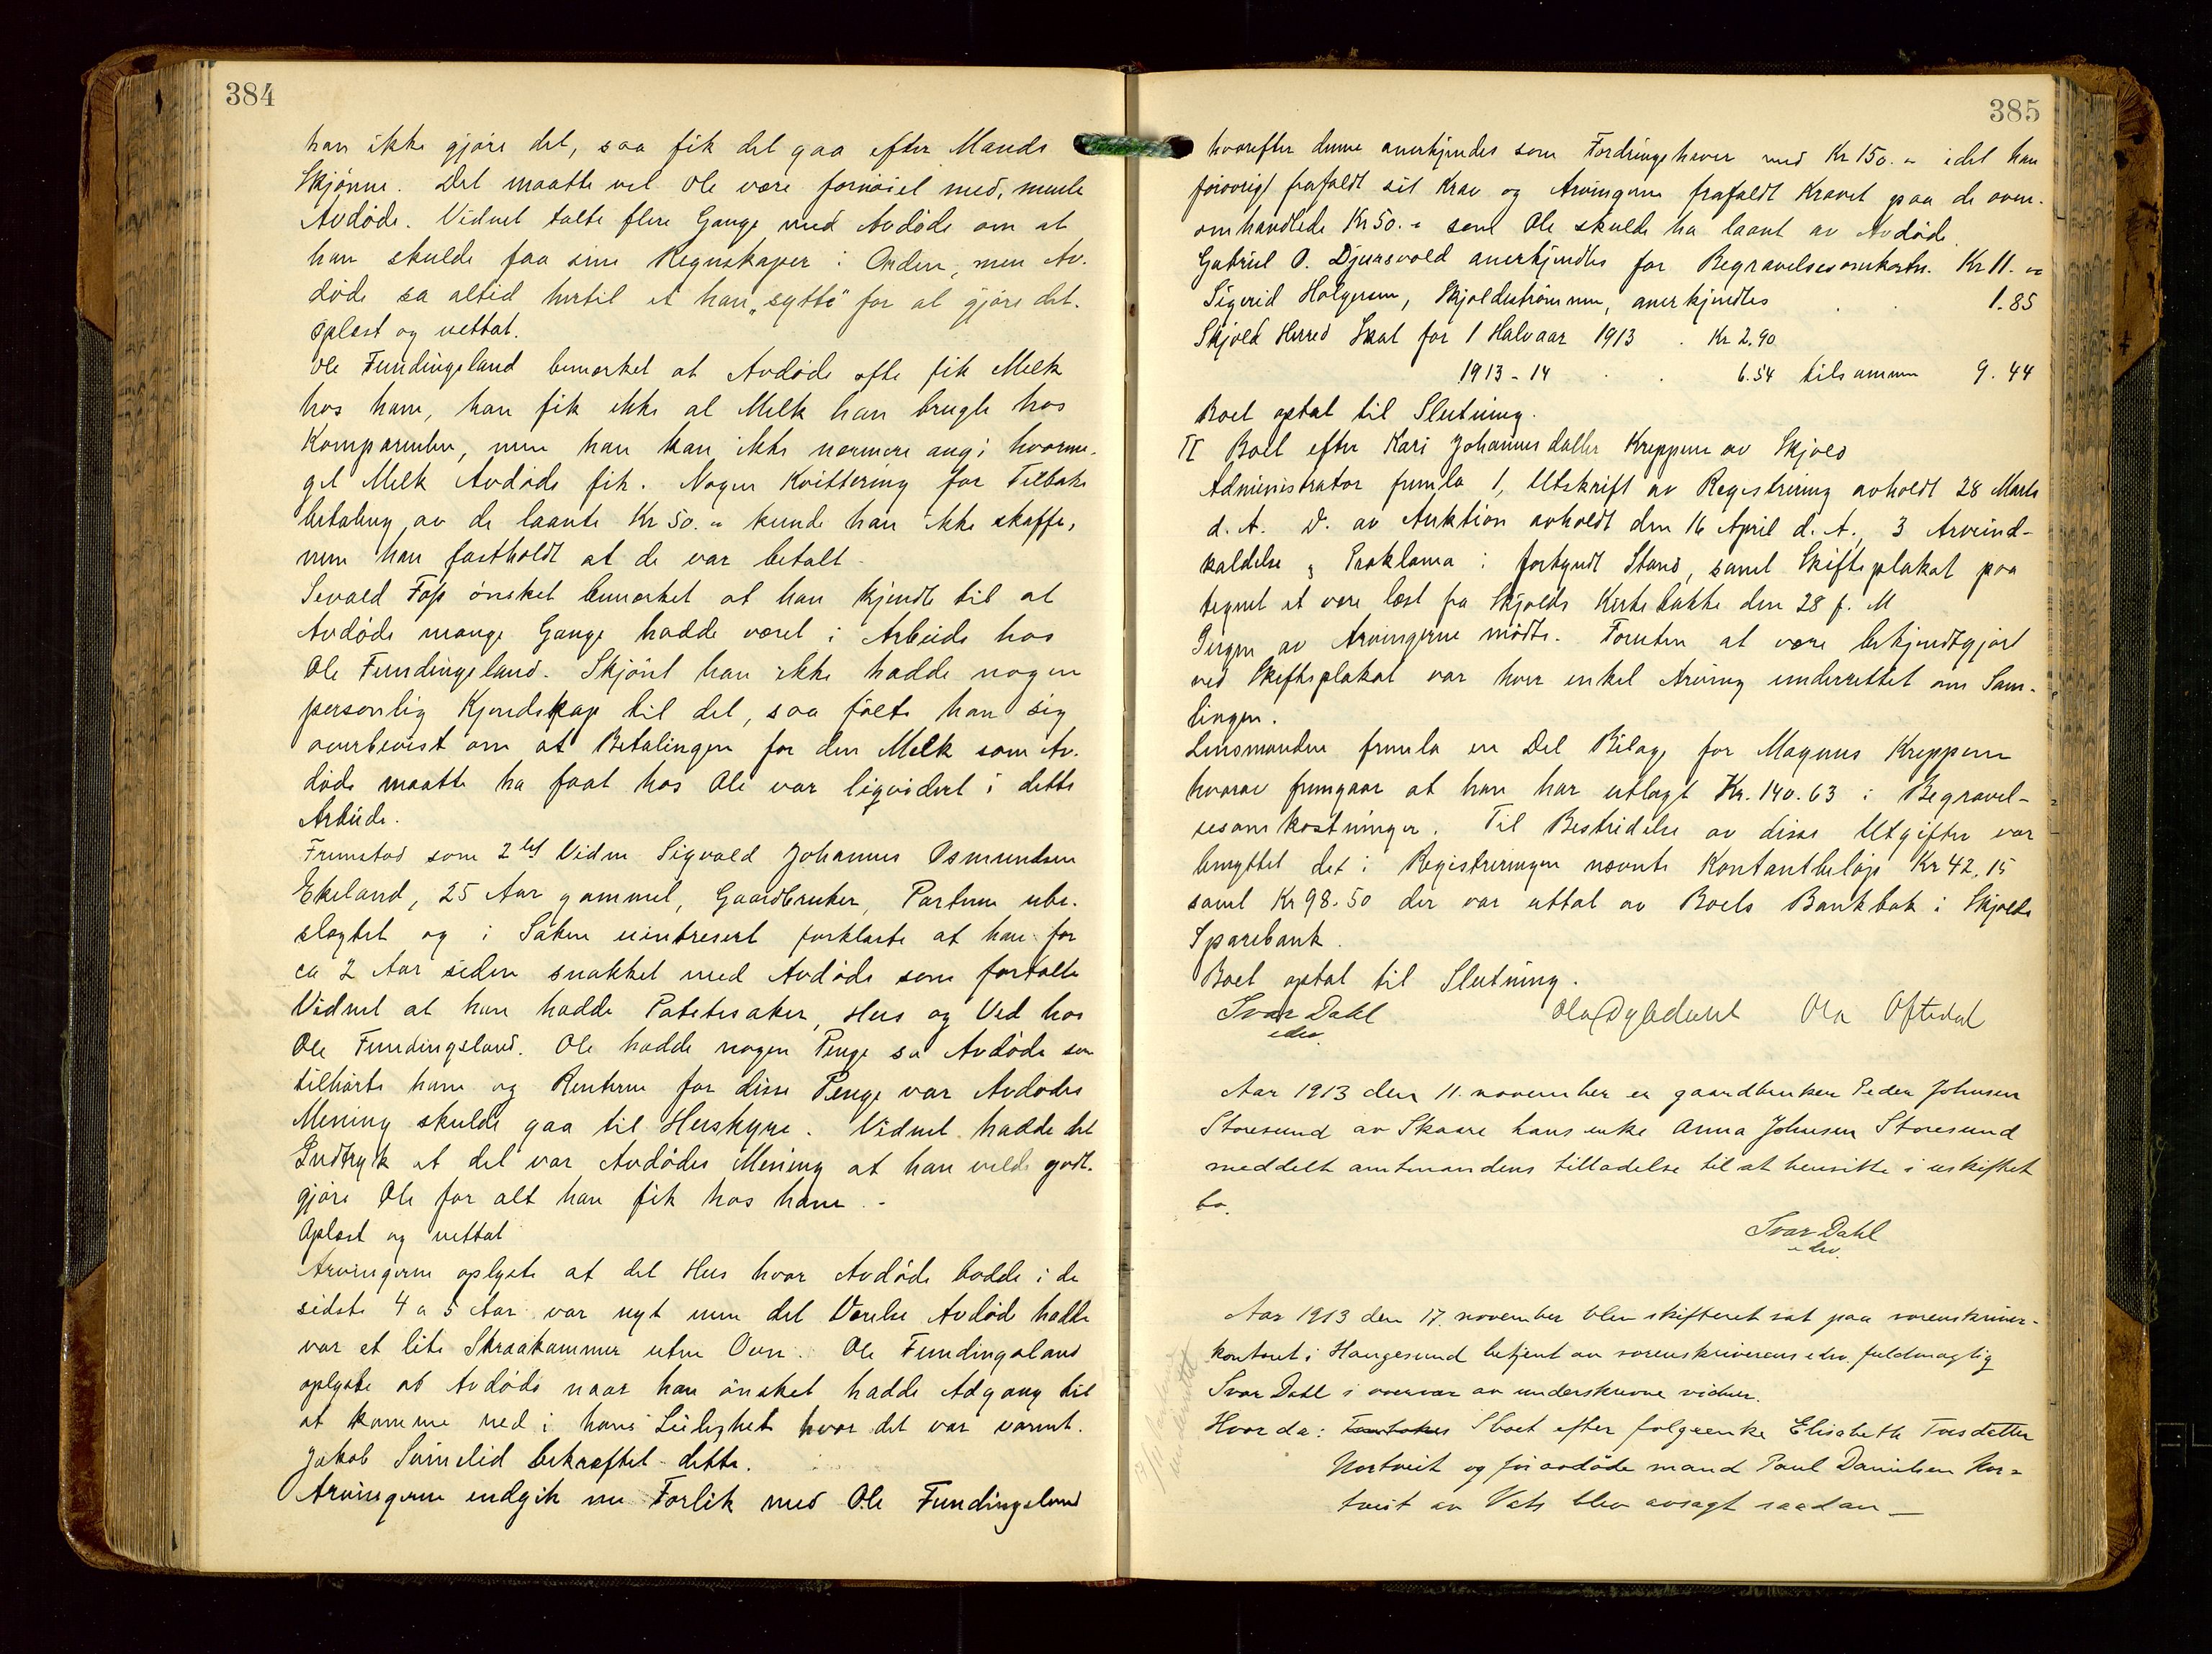 384
han ikke gjøre det, saa fik det gaa efter Mands
Skjønn. Det maatte vel Ole være fornøiet med, mente
Avdøde. Vidnet talte flere Gange med Avdøde om at
han skulde faa sine Regnskaper i Orden, men Av-
døde sa altid hertil at han "sytte" for at gjøre det.
Oplæst og vettat.
Ole Fundingsland bemerket at Avdøde ofte fik Melk
hos ham, han fik ikke al Melk han brugte hos
Komparenten, men han kan ikke nærmere angi hvorme-
get Melk Avdøde fik. Nogen Kvittering for Tilbake
betaling av de laante Kr 50.- kunde han ikke skaffe,
men han fastholdt at de var betalt.
Sevald ønsket bemerket at han kjendte til at
Avdøde mange Gange hadde været i Arbeide hos
Ole Fundingsland. Skjønt han ikke hadde nogen
personlig Kjendskap til det, saa følte han sig
overbevist om at Betalingen for den Melk som Av-
døde maatte ha faat hos Ole var ligvidert i dette
Arbeide.
Fremstod som 2det Vidne Sigvald Johannes Osmundsen
Ekeland, 25 Aar gammel, Gaardbruker, Partene ube-
slegtet og i Saken uintressert forklarte at han for
ca 2 Aar siden snakket med Avdøde som fortalte
Vidnet at han hadde Potetesaker, Hus og Ved hos
Ole Fundingsland. Ole hadde nogen Penge sa Avdøde som
tilhørte ham og Renterne for disse Penge var Avdødes
Mening skulde gaa til Hushyre. Vidnet hadde det
Indtryk at det var Avdødes Mening at han vilde godt-
gjøre Ole for alt han fik hos ham.-
Oplæst og vettat
Arvingerne oplyste at det Hus hvor Avdøde bodde i de
sidste 4 a 5 Aar var nyt men det Værelse Avdøde hadde
var et lite Skraakammer uten Ovn. Ole Fundingsland
oplyste at Avdøde naar han ønsket hadde Adgang til
at komme ned i hans Leilighet hvor det var varmt.
Jakob Sørnelid bekræftet dette.
Arvingerne indgik nu Forlik med Ole Fundingsland
385
hvorefter denne anerkjendes som Fordringshaver med Kr 150.- idet han
forøvrigt frafaldt sit Krav og Arvingerne frafaldt Kravet paa de oven-
omhandlede Kr 50.- som Ole skulde ha laant av Avdøde.
Gabriel O. Djursvold anerkjendtes for Begravelsesomkostn. Kr 11.-
Sigerid Holgersen, Skjoldestrømmen, anerkjendtes 1.85
Skjold Herred Skat for 1 Halvaar 1913 . Kr 2.90
1913-14 . . 6.54 tilsammen 9.44
Boet optat til Slutning.
II Boet efter Kari Johannesdatter Kreppene av Skjold
Administrator fremla 1, Utskrift av Registrering avholdt 28 Marts
d. A. D. av Auktion avholdt den 16 April d. A., 3 Arveind-
kaldelse & Proklama i forkyndt Stand, samt Skifteplakat paa
tegnet at være læst fra Skjolds Kirkebakke den 28 f. M
Ingen av Arvingerne mødte. Foruten at være bekjendtgjort
ved Skifteplakat var hver enkel Arving underrettet om Sam-
lingen.
Lensmanden fremla en Del Bilag for Magnus Kreppene
hvorav fremgaar at han har utlagt Kr. 140.63 i Begravel-
sesomkostninger. Til Bestridelse av disse Utgifter var
benyttet det i Registreringen nævnte Kontantbeløp Kr 42.15
samt Kr 98.50 der var uttat av Boets Bankbok i Skjolds
Sparebank.
Boet optat til Slutning.
Ivar Dahl Ola Oftedal
edsv.
Aar 1913 den 11. november er gaardbruker Peder Johnsen
Storesund av Skaare hans enke Anna Johnsen Storesund
meddelt amtmandens tilladelse til at hensitte i uskiftet
bo.
Ivar Dahl
edsv.
Aar 1913 den 17. november blev skifteret sat paa sorenskriver-
kontoret i Haugesund betjent av sorenskriverens edsv. fuldmægtig
Ivar Dahl i overvær av underskrevne vidner.
Hvorda: I boet efter følgeenke Elisabeth Torsdatter
Nortveit og før avdøde mand Paul Danielsen Nor-
tveit av Vats blev avsagt saadan —